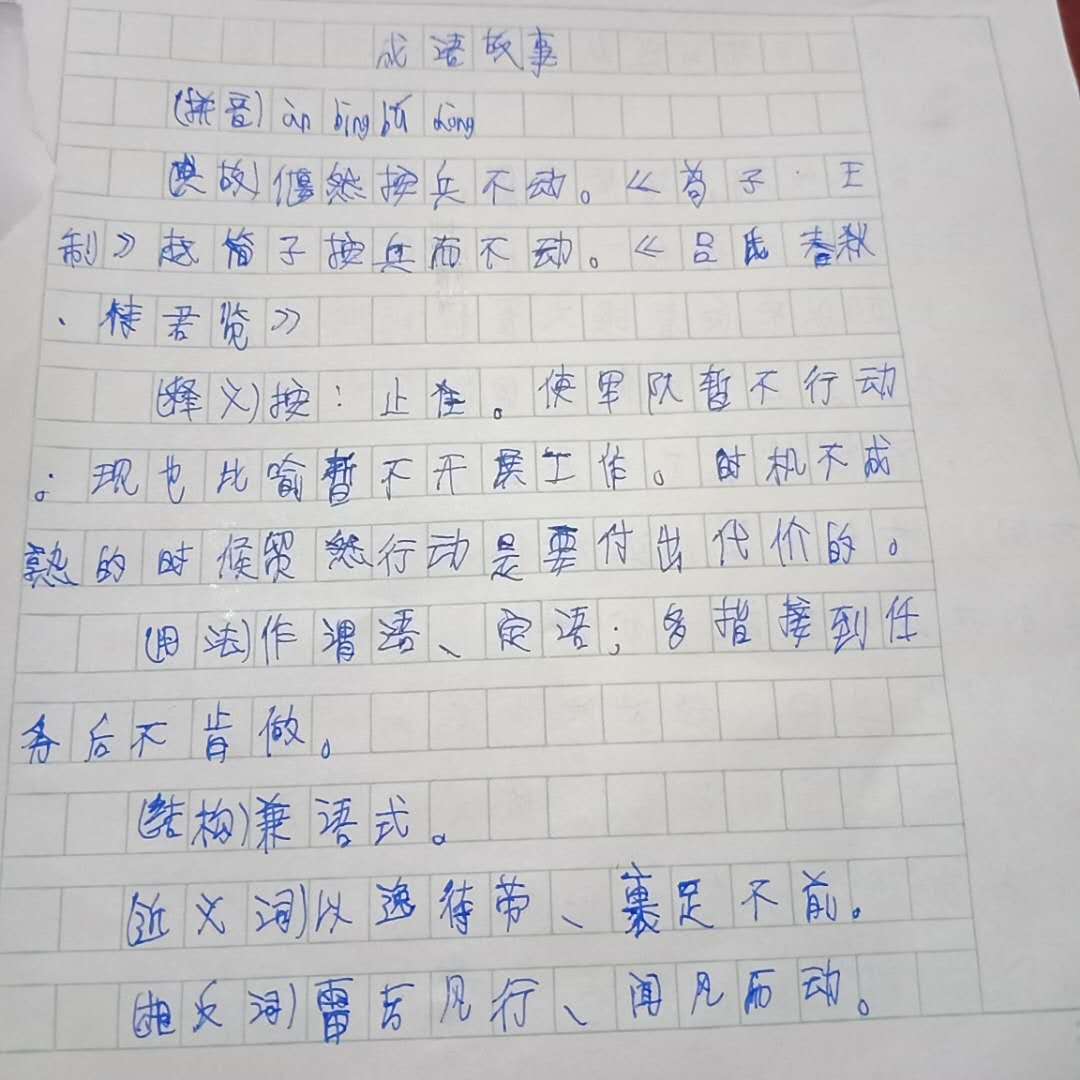 成语故事
(拼音) àn bīng bù dòng
典故)偃然按兵不动。《荀子·王
制》赵简子按兵而不动。《吕氏春秋
、恃君览》
(释义)按：止住。使军队暂不行动
；现也比喻暂不开展工作。时机不成
熟的时候贸然行动是要付出代价的。
(用法)作谓语、定语；多指接到任
务后不肯做。
(结构)兼语式。
(近义词)以逸待劳、裹足不前。
(相反词)雷厉风行、闻风而动。